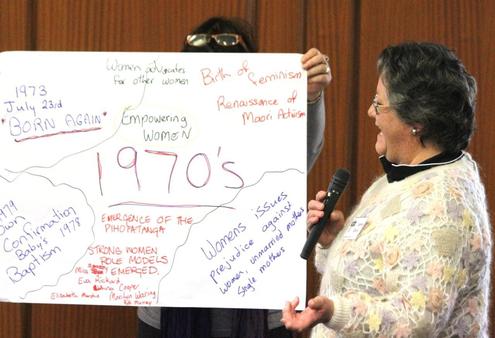 Women advocates
for other women
Birth of Feminism
Renaissance of
Maori Activism
1973
July 23rd
"BORN AGAIN"
Empowering
WOMEN
1970's
1979
Own
Confirmation
Baby's 1978
Baptism
EMERGENCE OF THE
PIHOPATANGA
STRONG WOMEN
ROLE MODELS
EMERGED.
Eva Rickard,
Cooper
Elizabeth
Marilyn Waring
Womens issues
prejudice against
women, unmarried mothers
Single mothers